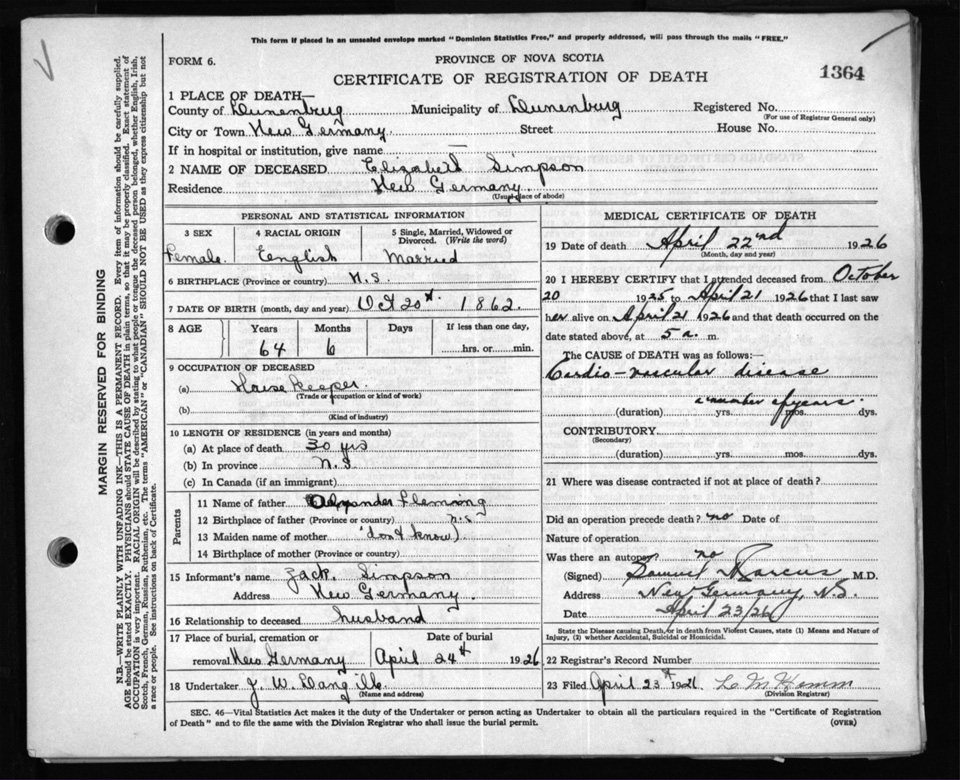 This form if placed in an unsealed envelope marked "Dominion Statistics Free," and properly addressed, will pass through the mails "FREE."
FORM 6. PROVINCE OF NOVA SCOTIA
CERTIFICATE OF REGISTRATION OF DEATH 1364
1 PLACE OF DEATH—
County of Lunenburg Municipality of Lunenburg Registered No.
(For use of Registrar General only)
City or Town New Germany Street House No.
If in hospital or institution, give name —
2 NAME OF DECEASED Elizabeth Simpson
Residence New Germany
(Usual place of abode)
PERSONAL AND STATISTICAL INFORMATION
3 SEX 4 RACIAL ORIGIN 5 Single, Married, Widowed or Divorced. (Write the word)
Female. English Married
6 BIRTHPLACE (Province or country) N.S.
7 DATE OF BIRTH (month, day and year) Oct 20th 1862.
8 AGE Years Months Days If less than one day,
64 6 hrs. or min.
9 OCCUPATION OF DECEASED
(a) House Keeper.
(Trade or occupation or kind of work)
(b)
(Kind of industry)
10 LENGTH OF RESIDENCE (in years and months)
(a) At place of death 30 yrs
(b) In province N.S.
(c) In Canada (if an immigrant)
Parents
11 Name of father Alexander Fleming
12 Birthplace of father (Province or country) N.S.
13 Maiden name of mother (don't know)
14 Birthplace of mother (Province or country)
15 Informant's name Zack. Simpson
Address New Germany.
16 Relationship to deceased husband
17 Place of burial, cremation or removal New Germany Date of burial April 24th 1926
18 Undertaker J. W. Langille
(Name and address)
MEDICAL CERTIFICATE OF DEATH
19 Date of death April 22nd 1926
(Month, day and year)
20 I HEREBY CERTIFY that I attended deceased from October
20 1925 to April 21 1926 that I last saw
her alive on April 21 1926 and that death occurred on the
date stated above, at 5 a. m.
The CAUSE of DEATH was as follows:—
Cardio-vascular disease
a number of years.
(duration) yrs. mos. dys.
CONTRIBUTORY
(Secondary)
(duration) yrs. mos. dys.
21 Where was disease contracted if not at place of death?
Did an operation precede death? no Date of
Nature of operation
Was there an autopsy? no
(Signed) Samuel Marcus M.D.
Address New Germany, N.S.
Date April 23/26
State the Disease causing Death, or in death from Violent Causes, state (1) Means and Nature of Injury, (2) whether Accidental, Suicidal or Homicidal.
22 Registrar's Record Number
23 Filed April 23rd 1926
(Division Registrar)
SEC. 46—Vital Statistics Act makes it the duty of the Undertaker or person acting as Undertaker to obtain all the particulars required in the "Certificate of Registration
of Death" and to file the same with the Division Registrar who shall issue the burial permit. (OVER)
MARGIN RESERVED FOR BINDING
N.B.—WRITE PLAINLY WITH UNFADING INK—THIS IS A PERMANENT RECORD. Every item of information should be carefully supplied.
AGE should be stated EXACTLY. PHYSICIANS should STATE CAUSE OF DEATH in plain terms, so that it may be properly classified. Exact statement of
OCCUPATION is very important. RACIAL ORIGIN will be described by stating to what people or tongue the deceased person belonged, whether English, Irish,
Scotch, French, German, Russian, Ruthenian, etc. The terms "AMERICAN" or "CANADIAN" SHOULD NOT BE USED as they express citizenship but not
a race or people. See instructions on back of Certificate.